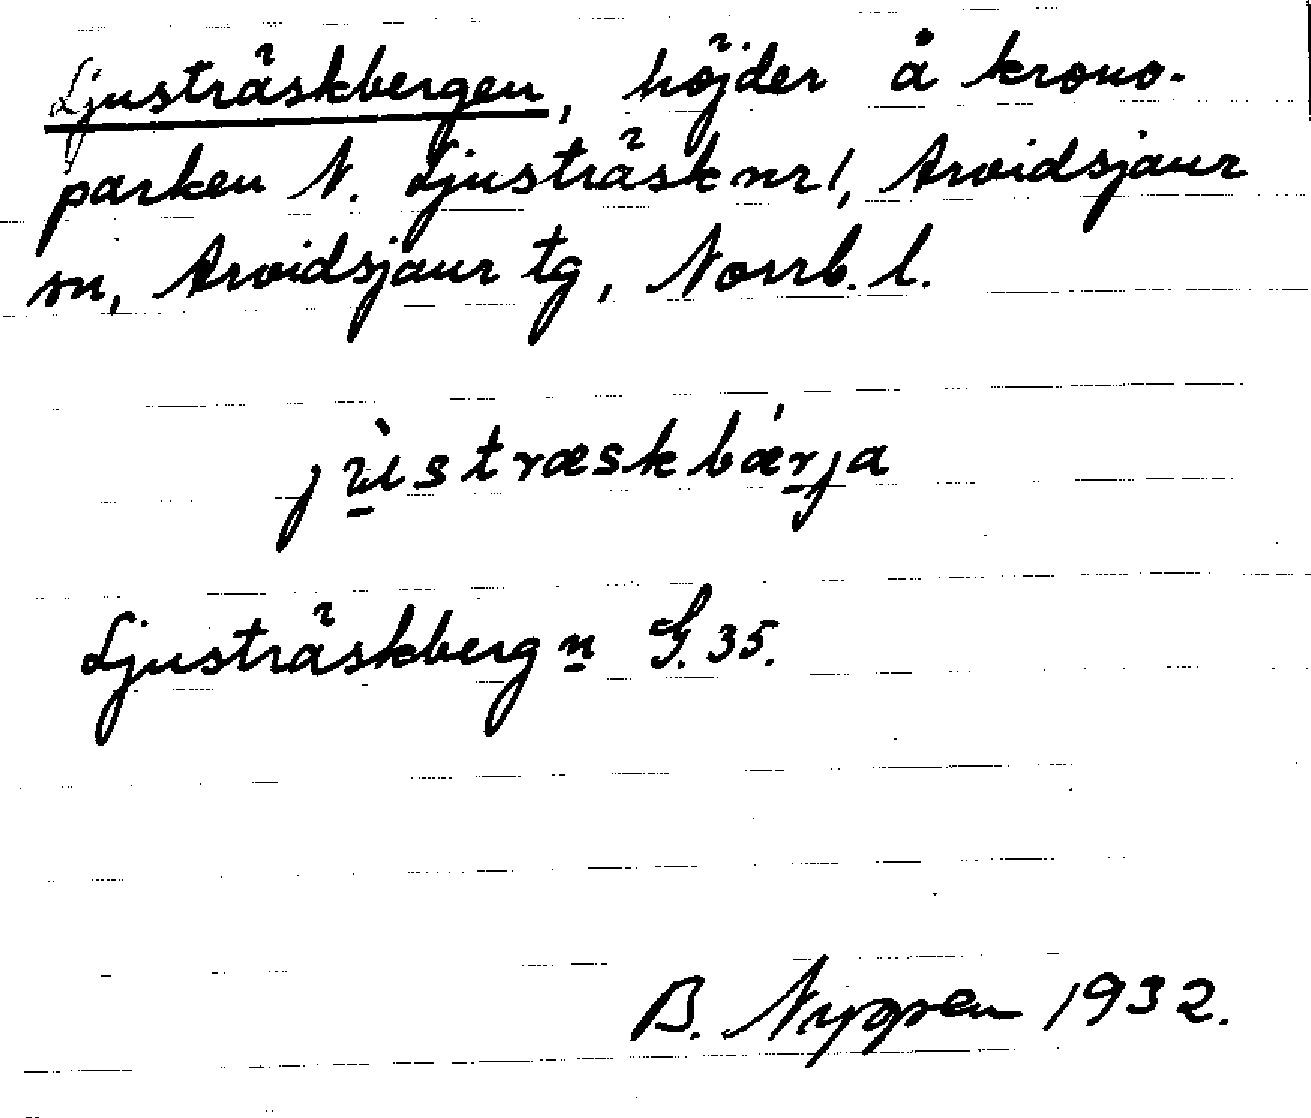 Ljusträskbergen, höjder å krono-
parken N. Ljusträsk nr 1, Arvidsjaur
sn, Arvidsjaur tg, Norrb. l.
jùstræskbǽrja
Ljusträskbergn G. 35.
B. Nygren 1932.